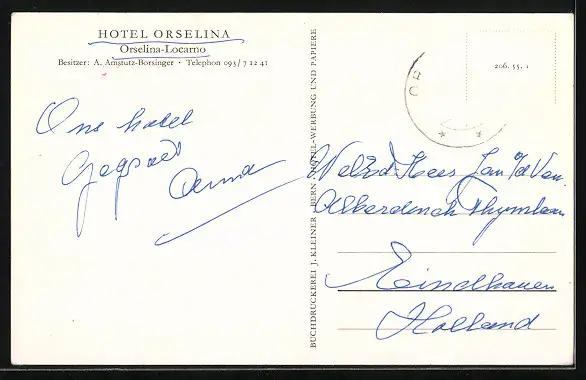 HOTEL ORSELINA
Orselina-Locarno
Besitzer: A. Amstutz-Borsinger · Telephon 093/7 12 41
Ons hotel
Anna
BUCHDRUCKEREI J. KLEINER · BERN · HOTEL-WERBUNG UND PAPIERE
OR
206. 55. 1
Heer Jan v/d Ven
Alberdinck Thymlaan
Eindhoven
Holland